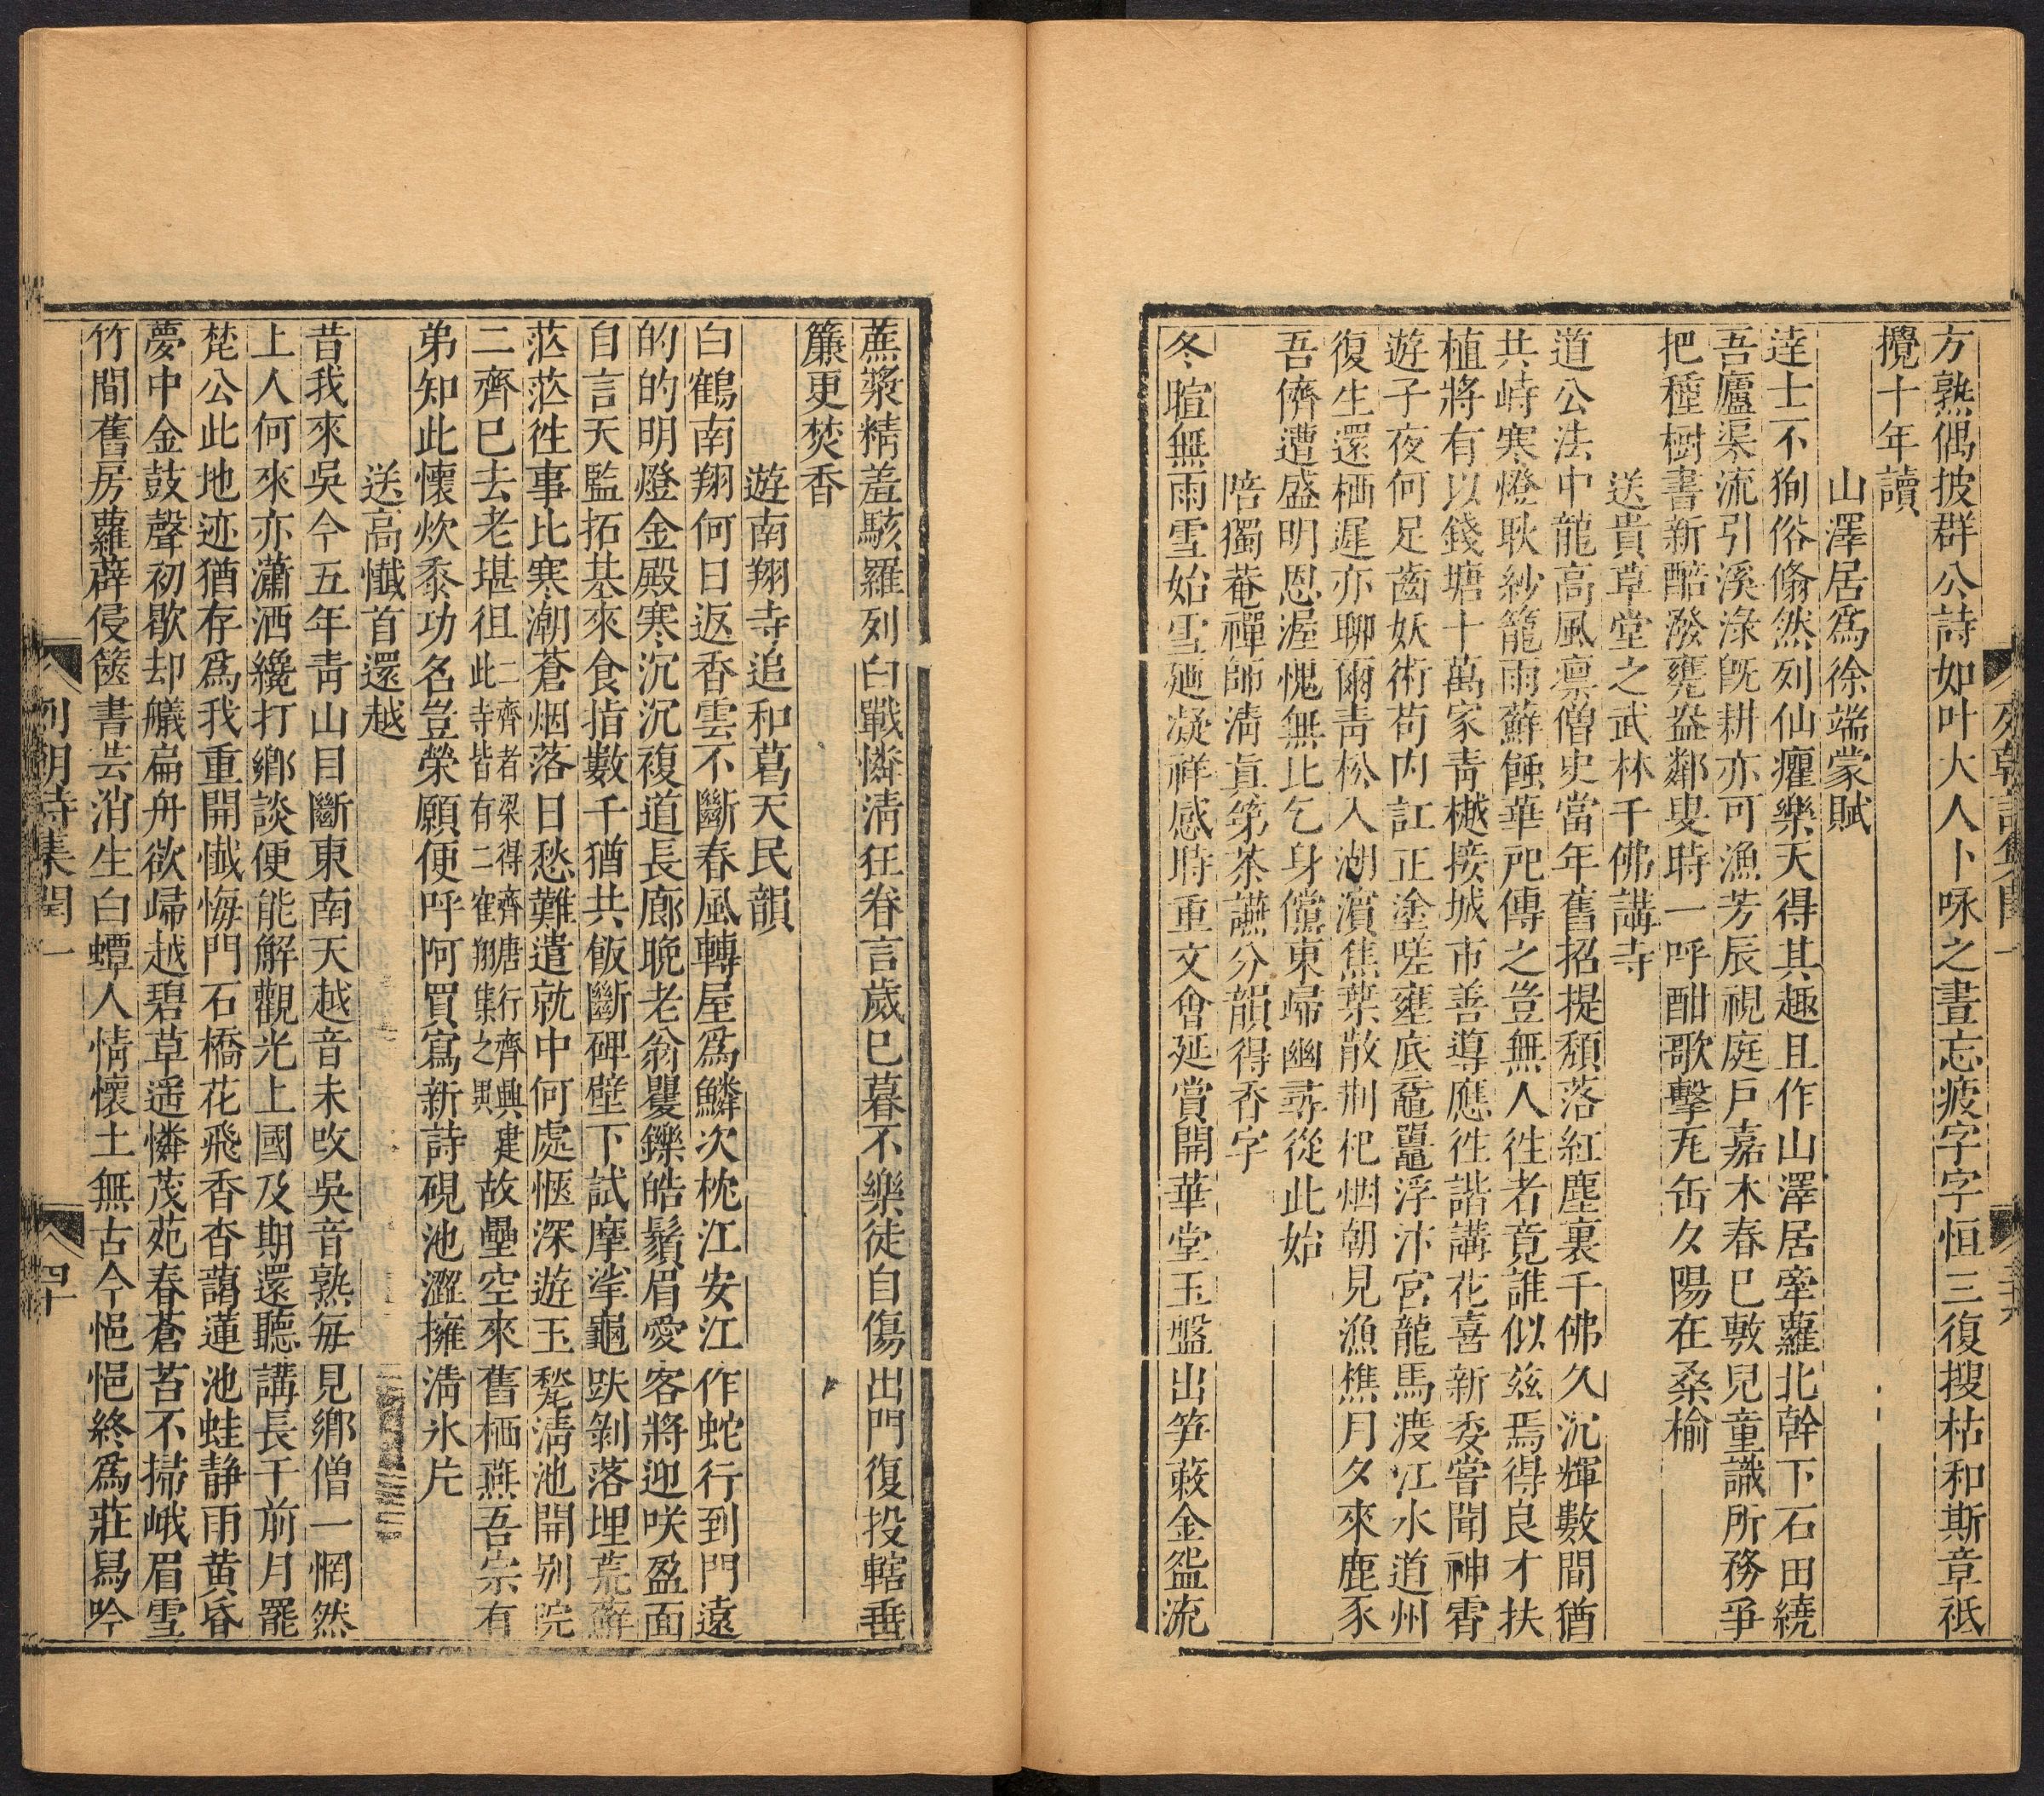 方熟偶披群公詩如叶大人卜咏之晝忘疲字字恒三復搜枯和斯章祗
攪十年讀
山澤居爲徐端蒙賦
逹士不狥俗翛然列仙癯樂天得其趣且作山澤居牽蘿北幹下石田繞
吾廬渠流引溪淥旣耕亦可漁芳辰視庭戶嘉木春巳敷兒童識所務爭
把種樹書新醅潑甕盎鄰叟時一呼酣歌擊缶夕陽在桑榆
送貴草堂之武林千佛講寺
道公法中龍高風禀僧史當年舊招提頽落紅塵裏千佛久沉輝數間猶
共峙寒燈耿紗籠雨蘚蝕華祀傳之豈無人徃者竟誰似兹焉得良才扶
植將有以錢塘十萬家靑樾接城市善導應徃諧講花喜新委嘗聞神霄
遊子夜何足齒妖術苟內訌正塗嗟壅底黿鼉浮沛宮龍馬渡江水道州
復生還栖遲亦聊爾靑松入湖濱焦葉散荆杞烟朝見漁樵月夕來鹿豕
吾儕遭盛明恩渥愧無比乞身儻東歸幽尋從此始
陪獨菴禪師淸眞第茶讌分韻得香字
冬暄無雨雪始雪廼凝祥感時重文會延賞開華堂玉盤出笋蔌金盌流
蔗漿精羞駭羅列白戰憐淸狂眷言歲巳暮不樂徒自傷出門復投轄垂
簾更焚香
遊南翔寺追和葛天民韻
白鶴南翔何日返香雲不斷春風轉屋爲鱗次枕江安江作蛇行到門遠
的的明燈金殿寒沉沉複道長廊晚老翁矍鑠皓鬚眉愛客將迎咲盈面
自言天監拓基來食指數千猶共飯斷碑壁下試摩挲龜趺剝落埋荒蘚
茫茫徃事比寒潮蒼烟落日愁難遣就中何處愜深遊玉甃淸池開別院
二齊巳去老堪徂二齊者梁得齊唐行齊興建此寺皆有二隺翔集之異故壘空來舊栖燕吾宗有
弟知此懷炊黍功名豈榮願便呼阿買寫新詩硯池澀擁淸氷片
送高懺首還越
昔我來吳今五年靑山目斷東南天越音未攺吳音熟每見鄕僧一惘然
上人何來亦瀟洒纔打鄕談便能解觀光上國及期還聽講長干前月罷
梵公此地迹猶存爲我重開懺悔門石橋花飛香杳藹蓮池蛙静雨黄昏
夢中金鼓聲初歇却艤扁舟欲歸越碧草遥憐茂苑春蒼苔不掃峨眉雪
竹間舊房蘿薜侵篋書芸消生白蟫人情懷土無古今悒悒終爲莊舄吟
列朝詩集閏一
四十